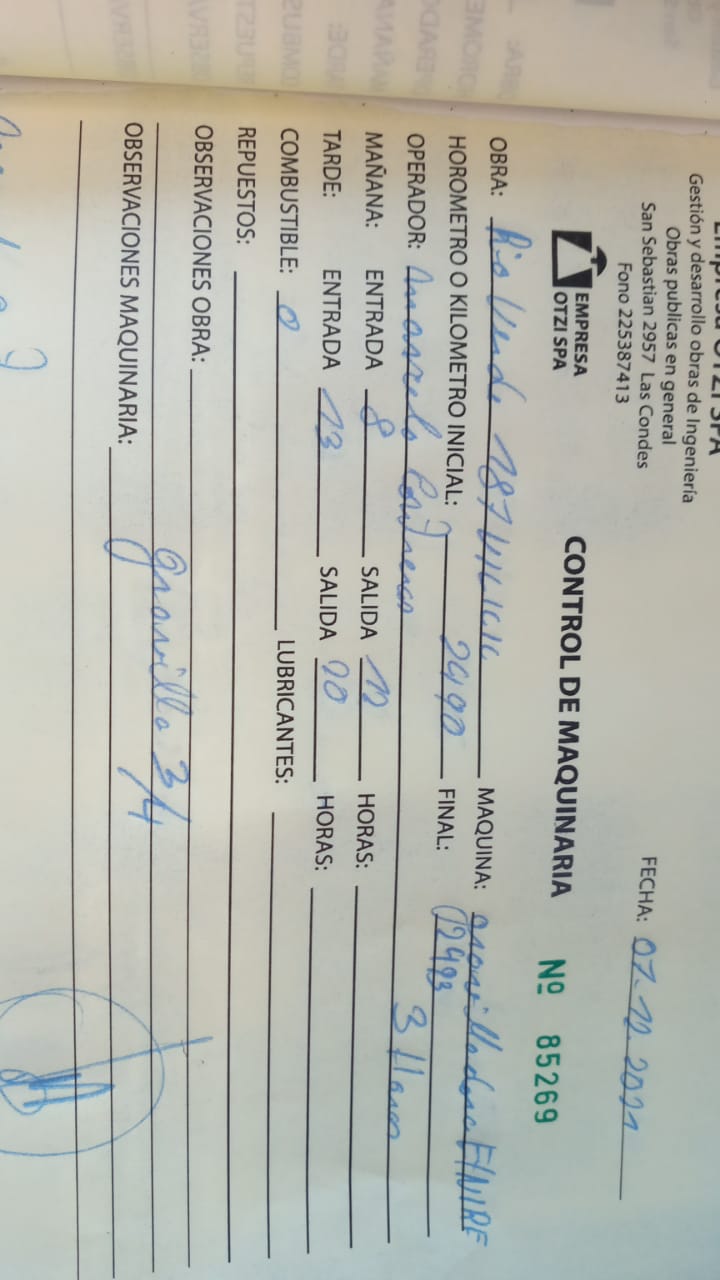 Empresa OTZI SPA
Gestión y desarrollo obras de Ingeniería
Obras publicas en general
San Sebastian 2957 Las Condes
Fono 225387413
FECHA: 07-12-2021
EMPRESA
OTZI SPA
CONTROL DE MAQUINARIA
Nº 85269
OBRA: Rio Verde 187
MAQUINA: gravilladora
HOROMETRO O KILOMETRO INICIAL: 2490 FINAL: 2493
OPERADOR: Marcelo Contreras 3 Horas
MAÑANA: ENTRADA 8 SALIDA 12 HORAS:
TARDE: ENTRADA 13 SALIDA 20 HORAS:
COMBUSTIBLE: 0 LUBRICANTES:
REPUESTOS:
OBSERVACIONES OBRA:
gravilla 3/4
OBSERVACIONES MAQUINARIA: